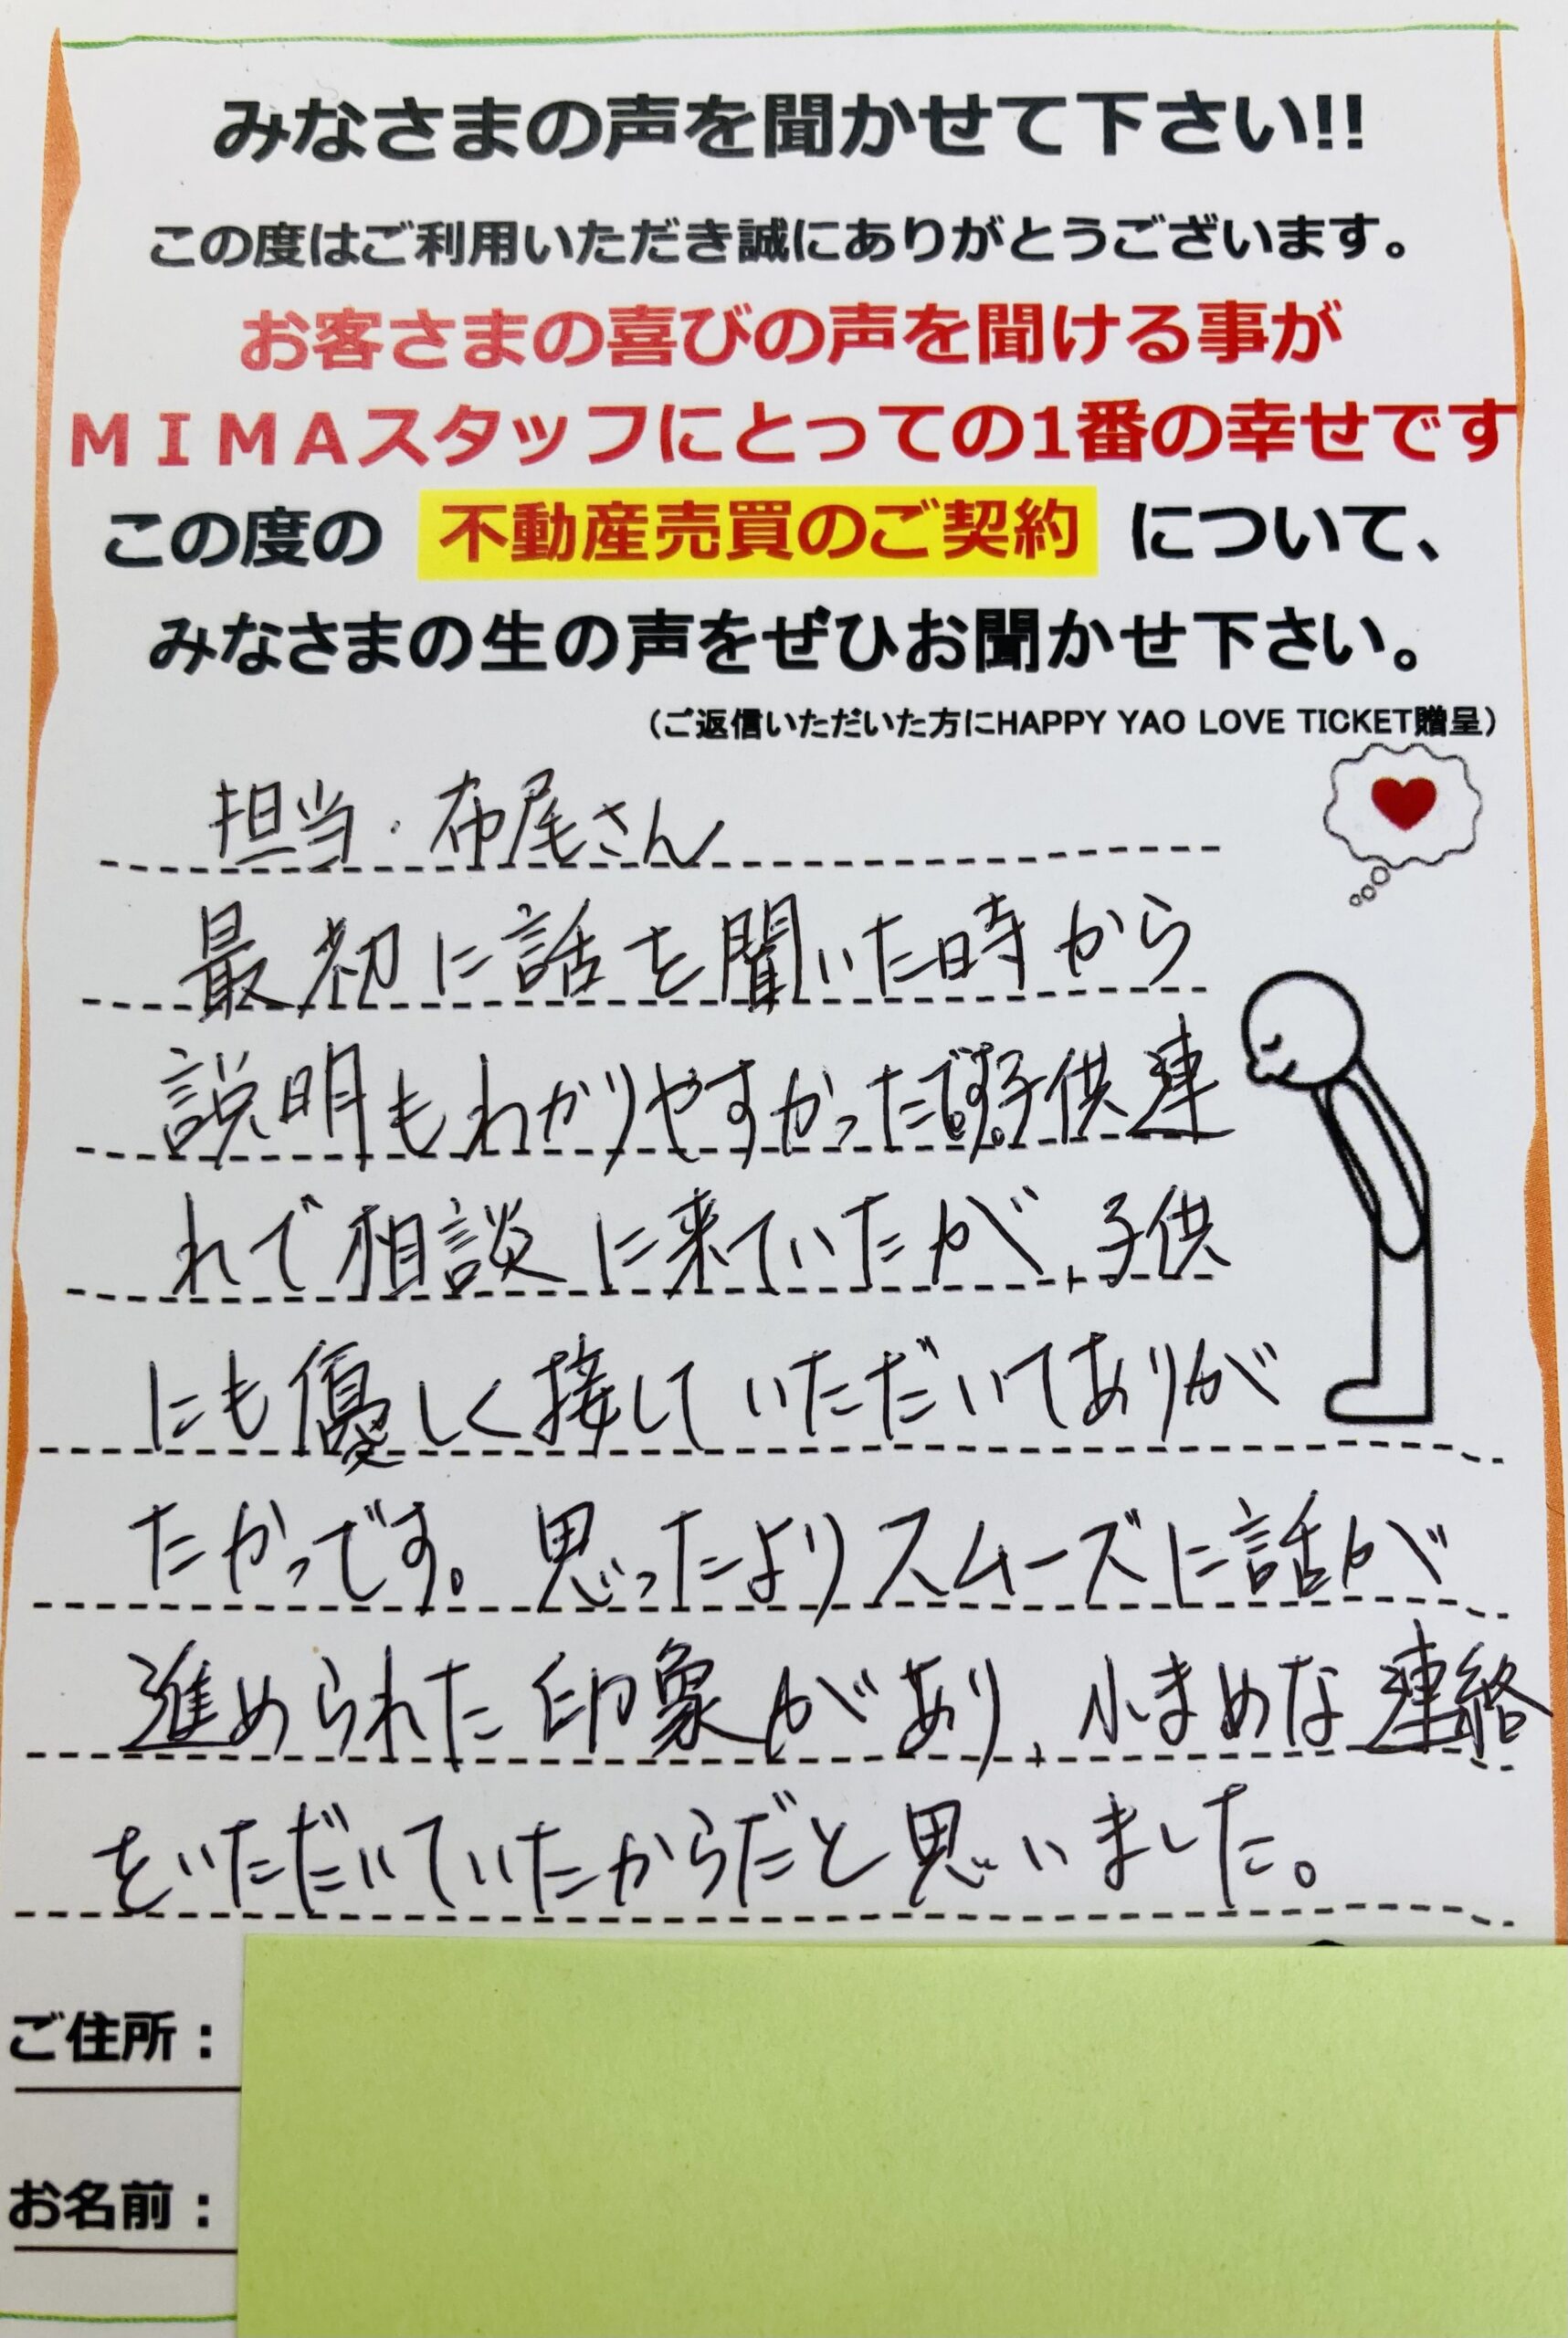 みなさまの声を聞かせて下さい!!
この度はご利用いただき誠にありがとうございます。
お客さまの喜びの声を聞ける事が
ＭＩＭＡスタッフにとっての1番の幸せです
この度の 不動産売買のご契約 について、
みなさまの生の声をぜひお聞かせ下さい。
（ご返信いただいた方にHAPPY YAO LOVE TICKET贈呈）
担当・布尾さん
最初に話を聞いた時から
説明もわかりやすかったです。子供連
れで相談に来ていたが、子供
にも優しく接していただいてありが
たかっです。思ったよりスムーズに話が
進められた印象があり、小まめな連絡
をいただいていたからだと思いました。
ご住所：
お名前：